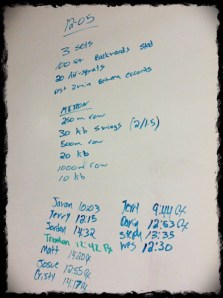 12-05
3 sets
100 Backwards Sled
20
Rest 2min between rounds
METCON
250m row
30 kb swings (2/1.5)
500m row
20 kb
1000m row
10 kb
Jaron 10:03
Terry 12:15
Jordan 14:32
12:42 Rx
Matt
Josue 12:55 Rx
Cristy
9:44 Rx
12:53 Rx
Steph 13:35
Wes 12:30